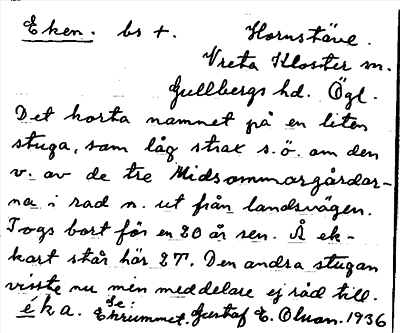 Eken. bs +. Hornstäve.
Vreta Kloster sn.
Gullbergs hd. Ögl.
Det korta namnet på en liten
stuga, som låg strax s.ö. om den
v. av de tre Midsommargårdar-
na i rad n. ut från landsvägen.
Togs bort för en 20 år sen. Å ek-
kart står här 2T. Den andra stugan
visste nu min meddelare ej råd till.
éka. Se: Ekrummet. Gustaf E. Olsson. 1936